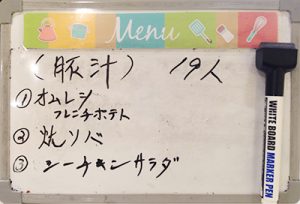 Menu
(豚汁) 19人
①オムレシ
フレンチポテト
②焼ソバ
③シーチキンサラダ
WHITE BOARD MARKER PEN